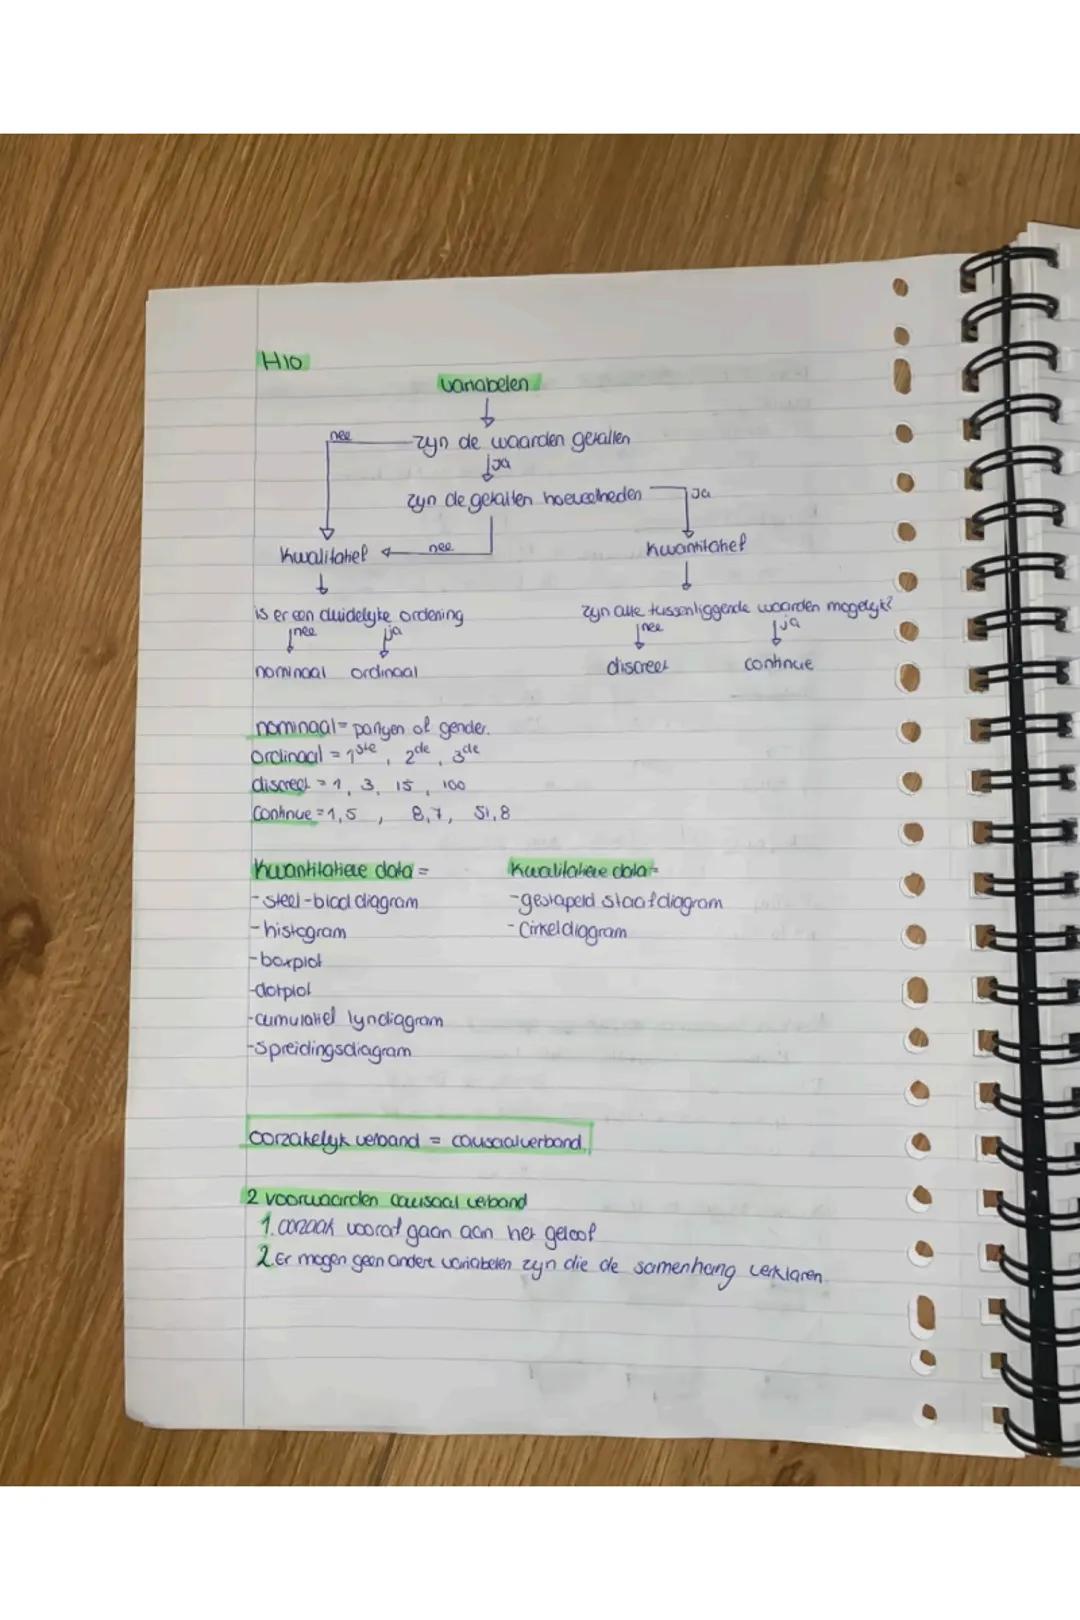 H10
variabelen
nee
zijn de waarden getallen
ja
zijn de getallen hoeveelheden
ja
kwalitatief
nee
kwantitatief
is er een duidelijke ordening
zijn alle tussenliggende waarden mogelijk?
nee ja
nee ja
nominaal ordinaal
discreet continue
nominaal = partijen of gender.
ordinaal = 1ste, 2de, 3de
discreet = 1, 3, 15, 100
Continue = 1,5 , 8,7, 51,8
Kwantitatieve data =
Kwalitatieve data =
- steel-blad diagram
- gestapeld staafdiagram
- histogram
- Cirkeldiagram
- boxplot
- dotplot
- cumulatief lijndiagram
- Spreidingsdiagram
oorzakelijk verband = causaalverband.
2 voorwaarden causaal verband
1. oorzaak vooraf gaan aan het
2. Er mogen geen andere variabelen zijn die de samenhang verklaren.